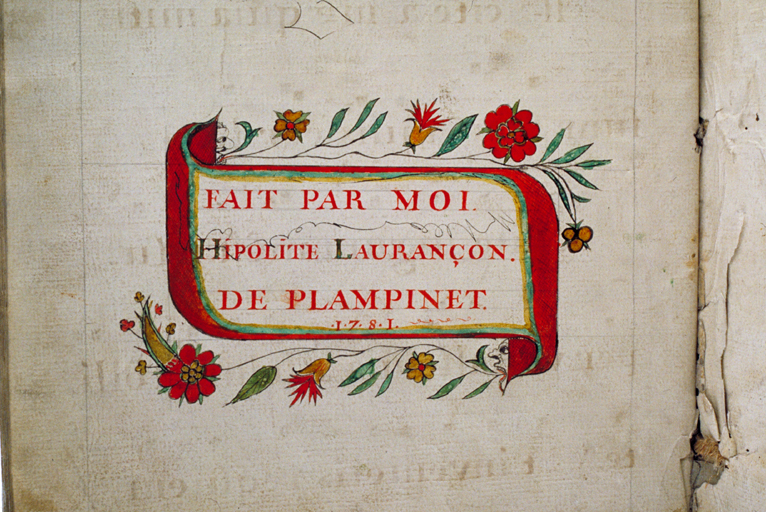 FAIT PAR MOI.
HIPOLITE LAURANÇON.
DE PLAMPINET.
·1·7·8·1·